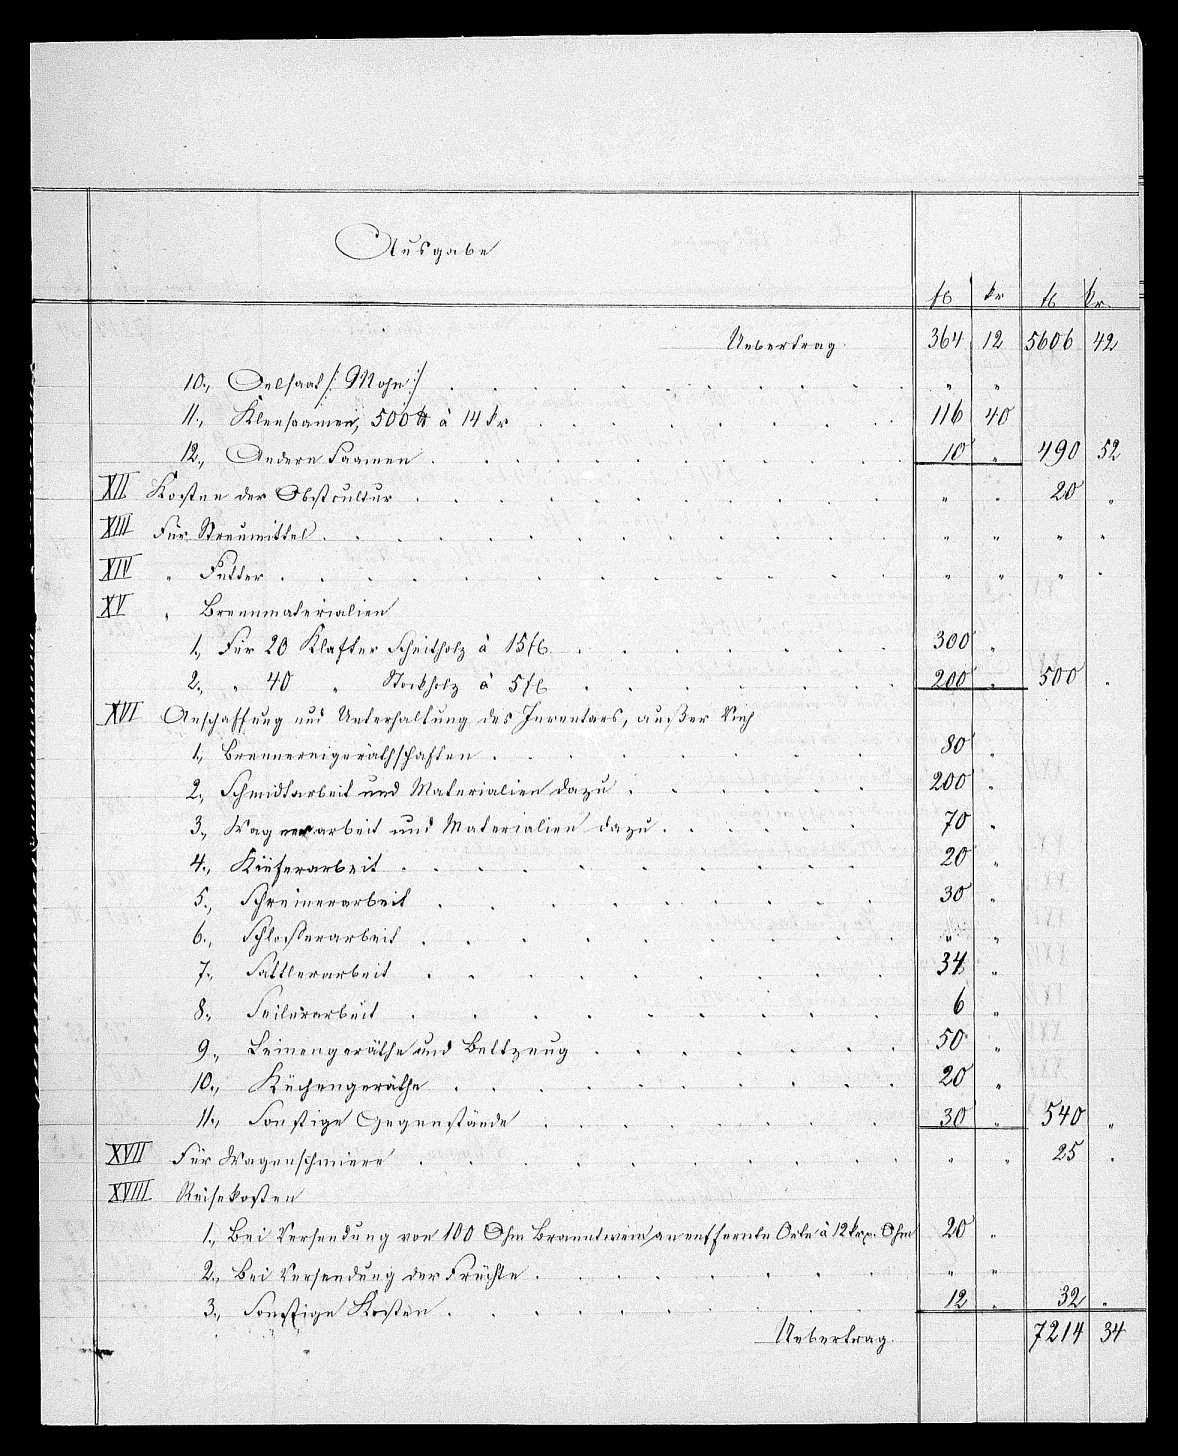 Ausgabe
fl kr fl kr.
Uebertrag. 364 12 5606 42
10., Oelsaat /: Mohn :/ . . . " "
11., Kleesaamen, 500 ℔ à 14 kr . . . 116 40
12., Andere Saamen . . . 10 " 490 52
XII Kosten der Obstcultur . . . " " 20 "
XIII Für Streumittel . . . " " " "
XIV " Futter . . . " " " "
XV " Brennmaterialien
1., Für 20 Klafter Scheitholz à 15 fl . . . 300 "
2., " 40 " Stockholz à 5 fl . . . 200 " 500 "
XVI Anschaffung und Unterhaltung des Inventars, außer Vieh
1., Brennereigeräthschaften . . . 80 "
2., Schmidtarbeit und Materialien dazu . . . 200 "
3., Wagnerarbeit und Materialien dazu . . . 70 "
4., Küferarbeit . . . 20 "
5., Schreinerarbeit . . . 30 "
6., Schlosserarbeit . . . " "
7., Sattlerarbeit . . . 34 "
8., Seilerarbeit . . . 6 "
9., Leinengeräthe und Bettzeug . . . 50 "
10., Küchengeräthe . . . 20 "
11., Sonstige Gegenstände . . . 30 " 540 "
XVII Für Wagenschmiere . . . " " 25 "
XVIII Reisekosten
1., Bei Versendung von 100 Ohm Branntwein an entfernte Orte à 12 kr p. Ohm 20 "
2., Bei Versendung der Früchte . . . " "
3., Sonstige Kosten . . . 12 " 32 "
Uebertrag. 7214 34